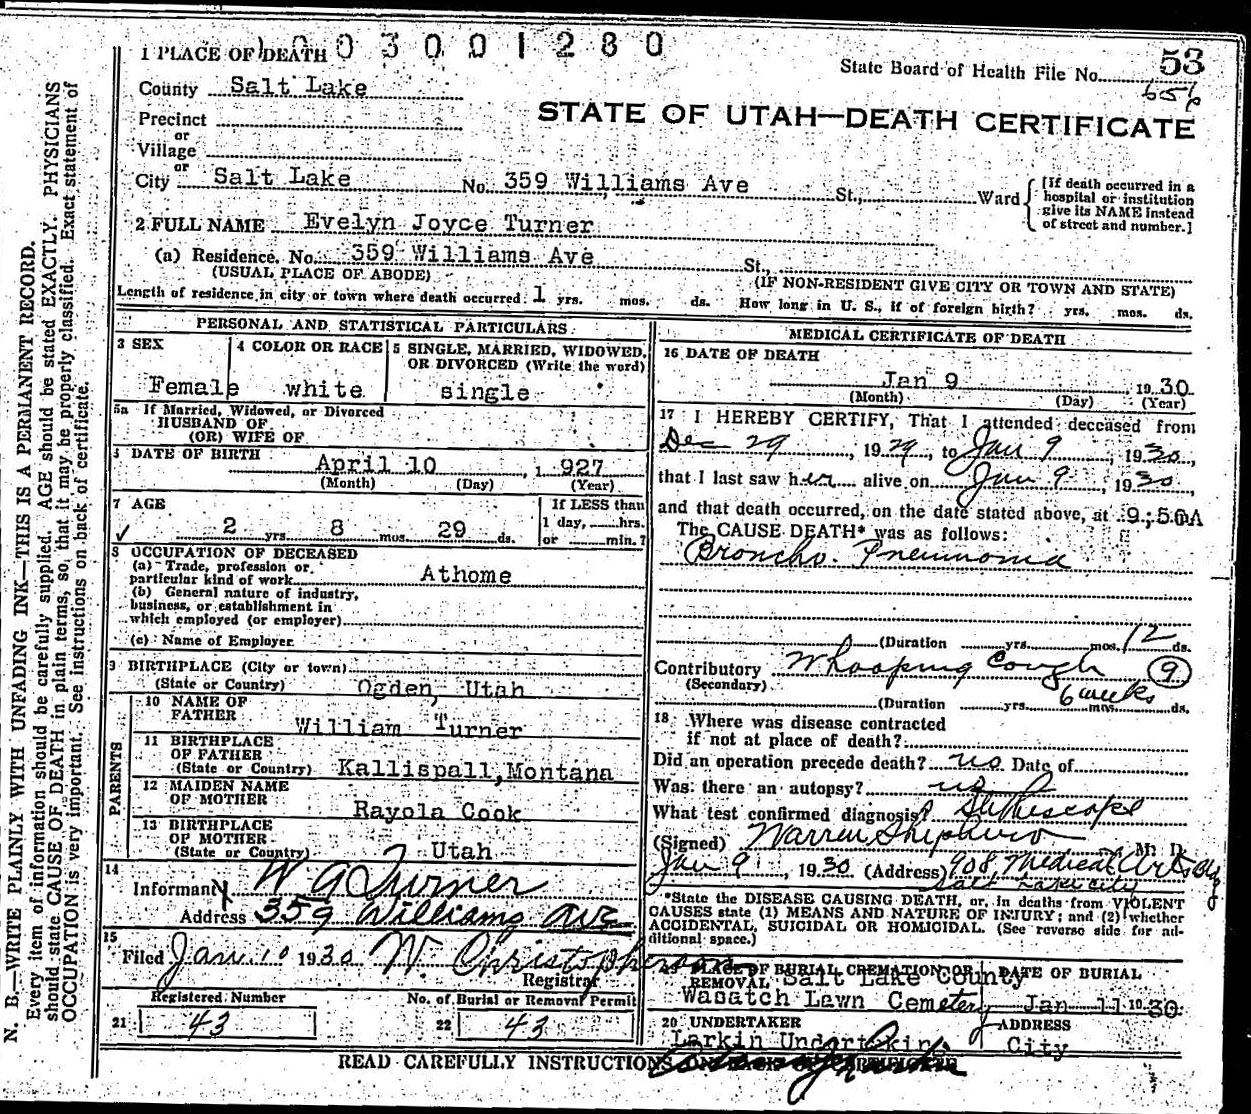 1 PLACE OF DEATH 003001280
State Board of Health File No. 53
656
County Salt Lake
STATE OF UTAH—DEATH CERTIFICATE
Precinct
or
Village
or
City Salt Lake No. 359 Williams Ave St., Ward
[If death occurred in a
hospital or institution
give its NAME instead
of street and number.]
2 FULL NAME Evelyn Joyce Turner
(a) Residence. No. 359 Williams Ave St.,
(USUAL PLACE OF ABODE) (IF NON-RESIDENT GIVE CITY OR TOWN AND STATE)
Length of residence in city or town where death occurred. 1 yrs. mos. ds. How long in U. S., if of foreign birth? yrs. mos. ds.
PERSONAL AND STATISTICAL PARTICULARS
3 SEX
Female
4 COLOR OR RACE
white
5 SINGLE, MARRIED, WIDOWED,
OR DIVORCED (Write the word)
single
5a If Married, Widowed, or Divorced
HUSBAND OF
(OR) WIFE OF
DATE OF BIRTH
April 10, 1 927
(Month) (Day) (Year)
7 AGE
If LESS than
1 day, hrs.
or min.?
2 yrs. 8 mos. 29 ds.
8 OCCUPATION OF DECEASED
(a) Trade, profession or
particular kind of work Athome
(b) General nature of industry,
business, or establishment in
which employed (or employer)
(c) Name of Employer
9 BIRTHPLACE (City or town)
(State or Country) Ogden, Utah
PARENTS
10 NAME OF
FATHER William Turner
11 BIRTHPLACE
OF FATHER
(State or Country) Kallispall, Montana
12 MAIDEN NAME
OF MOTHER Rayola Cook
13 BIRTHPLACE
OF MOTHER
(State or Country) Utah
14
Informant W G Turner
Address 359 Williams Ave
15
Filed Jan 10 1930 W. Christopherson
Registrar
Registered Number
21 43
No. of Burial or Removal Permit
22 43
MEDICAL CERTIFICATE OF DEATH
16 DATE OF DEATH
Jan 9, 1930
(Month) (Day) (Year)
17 I HEREBY CERTIFY, That I attended deceased from
Dec 29, 1929, to Jan 9, 1930,
that I last saw her alive on Jan 9, 1930,
and that death occurred, on the date stated above, at 9;50A
The CAUSE DEATH* was as follows:
Broncho. Pneumonia
(Duration yrs. mos. 12 ds.
Contributory Whooping Cough 9
(Secondary)
6 weeks
(Duration yrs. mos. ds.
18 Where was disease contracted
if not at place of death?
Did an operation precede death? no Date of
Was there an autopsy? no
What test confirmed diagnosis? Stethescope
(Signed) Warren Shepherd M. D.
Jan 9, 1930 (Address) 908, Medical Arts Bldg
Salt Lake City
*State the DISEASE CAUSING DEATH, or, in deaths from VIOLENT
CAUSES state (1) MEANS AND NATURE OF INJURY; and (2) whether
ACCIDENTAL, SUICIDAL OR HOMICIDAL. (See reverse side for ad-
ditional space.)
19 PLACE OF BURIAL CREMATION OR
REMOVAL Salt Lake County
Wasatch Lawn Cemetery
DATE OF BURIAL
Jan 11 1930
20 UNDERTAKER
Larkin Undertaking
ADDRESS
City
READ CAREFULLY INSTRUCTIONS ON BACK OF CERTIFICATE
N. B.—WRITE PLAINLY WITH UNFADING INK—THIS IS A PERMANENT RECORD.
Every item of information should be carefully supplied. AGE should be stated EXACTLY. PHYSICIANS
should state CAUSE OF DEATH in plain terms, so that it may be properly classified. Exact statement of
OCCUPATION is very important. See instructions on back of certificate.